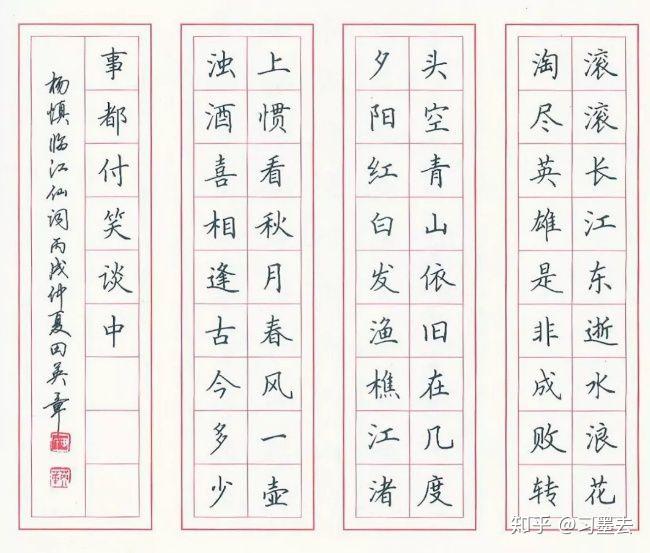 滚滚长江东逝水浪花
淘尽英雄是非成败转
头空青山依旧在几度
夕阳红白发渔樵江渚
上惯看秋月春风一壶
浊酒喜相逢古今多少
事都付笑谈中
杨慎临江仙词丙戌仲夏田英章
知乎 @习墨去